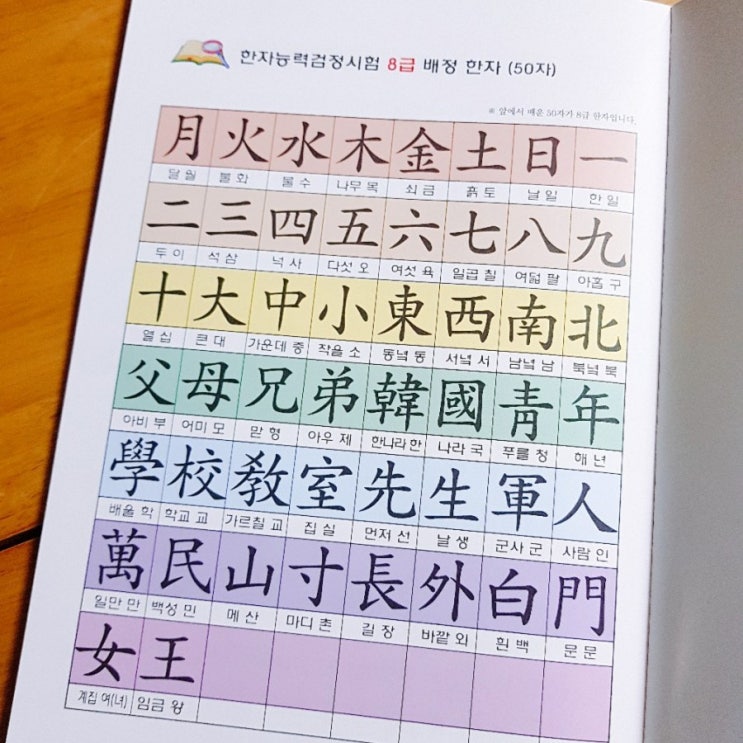 한자능력검정시험 8급 배정 한자 (50자)
※ 앞에서 배운 50자가 8급 한자입니다.
月 火 水 木 金 土 日 一
달 월 불 화 물 수 나무 목 쇠 금 흙 토 날 일 한 일
二 三 四 五 六 七 八 九
두 이 석 삼 넉 사 다섯 오 여섯 육 일곱 칠 여덟 팔 아홉 구
十 大 中 小 東 西 南 北
열 십 큰 대 가운데 중 작을 소 동녘 동 서녘 서 남녘 남 북녘 북
父 母 兄 弟 韓 國 靑 年
아비 부 어미 모 맏 형 아우 제 한나라 한 나라 국 푸를 청 해 년
學 校 敎 室 先 生 軍 人
배울 학 학교 교 가르칠 교 집 실 먼저 선 날 생 군사 군 사람 인
萬 民 山 寸 長 外 白 門
일만 만 백성 민 메 산 마디 촌 길 장 바깥 외 흰 백 문 문
女 王
계집 여(녀) 임금 왕